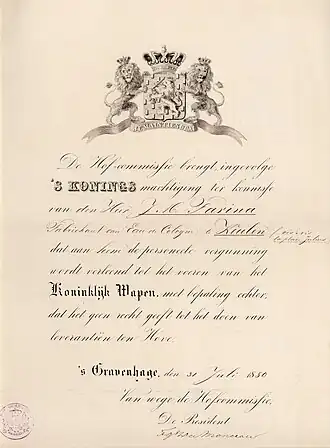 JE MAINTIENDRAI
De Hofcommissie brengt, ingevolge
'S KONINGS machtiging ter kennisse
van den Heer J. M. Farina
Fabrikant van Eau de Cologne te Keulen
dat aan hem de personeele vergunning
wordt verleend tot het voeren van het
Koninklijk Wapen, met bepaling echter,
dat het geen recht geeft tot het doen van
leverantiën ten Hove.
's Gravenhage, den 31 Juli 1880
Van wege de Hofcommissie,
De President